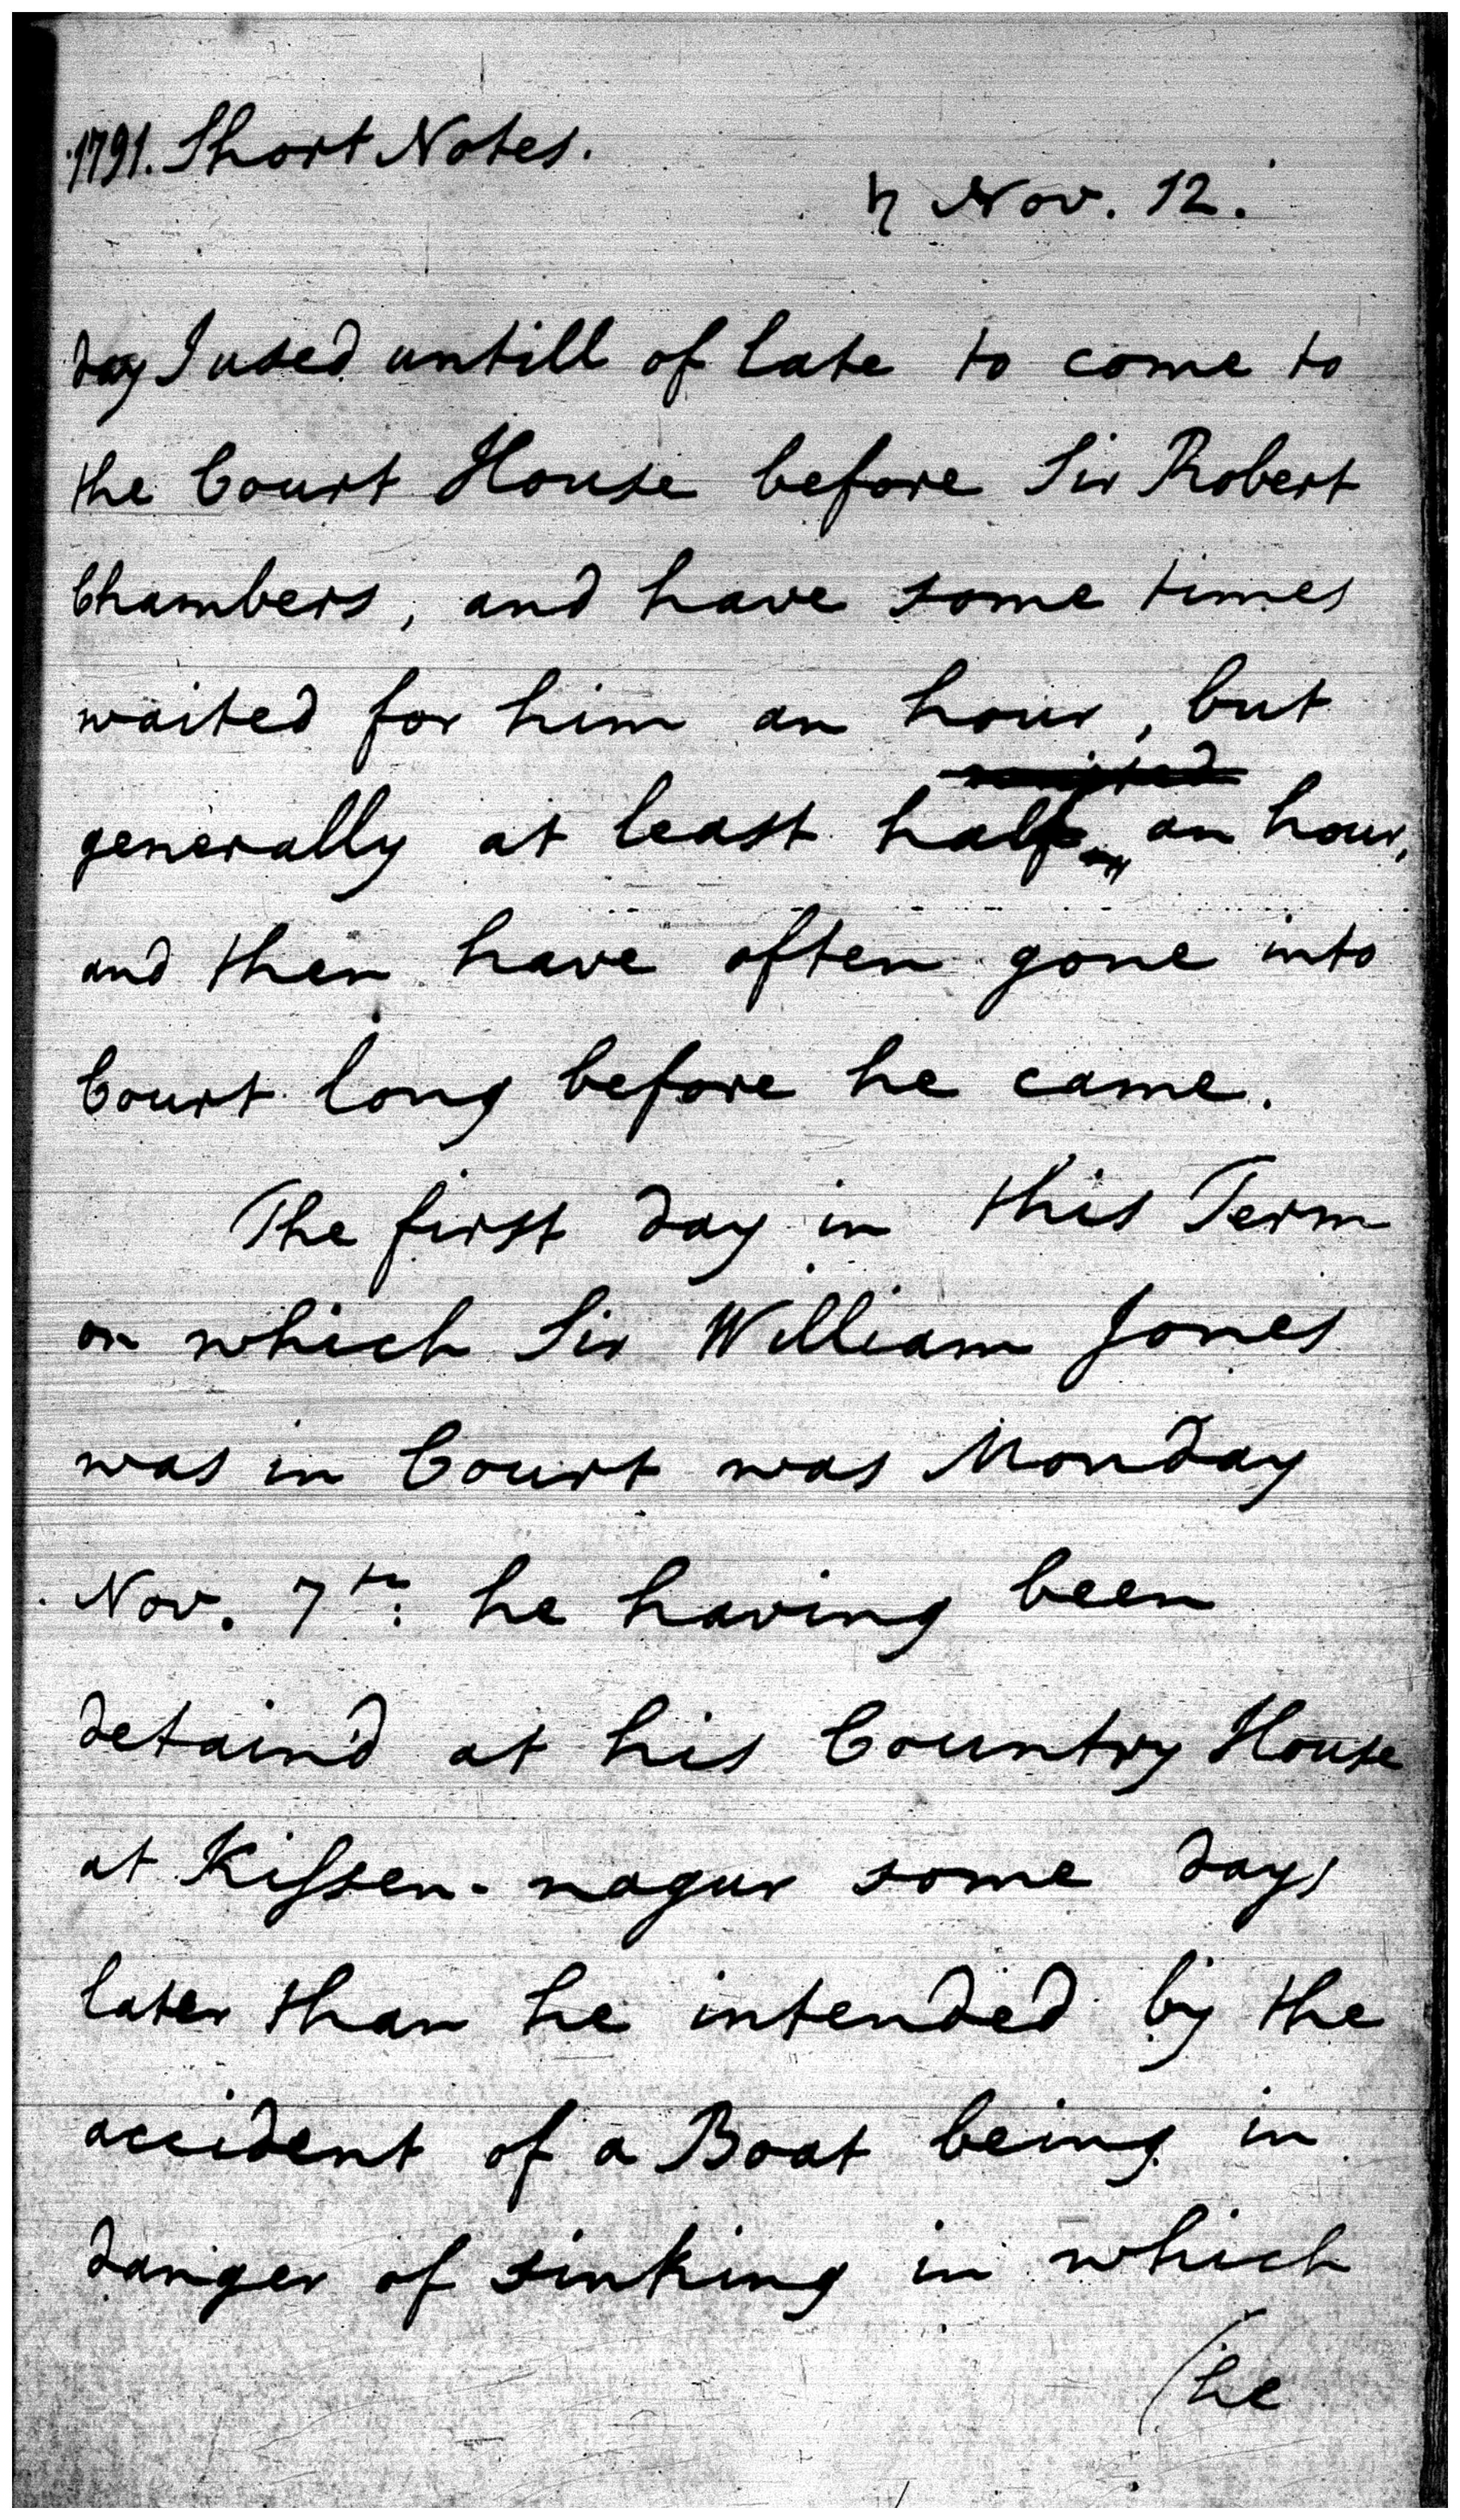 1791. Short Notes.
♄ Nov. 12.
day I used untill of late to come to
the Court House before Sir Robert
Chambers, and have some times
waited for him an hour, but
generally at least half an hour,
and then have often gone into
Court long before he came.
The first day in this Term
on which Sir William Jones
was in Court was Monday
Nov. 7th: he having been
detain'd at his Country House
at Kiſsen-nagur some days
later than he intended by the
accident of a Boat being in
danger of sinking in which
(he